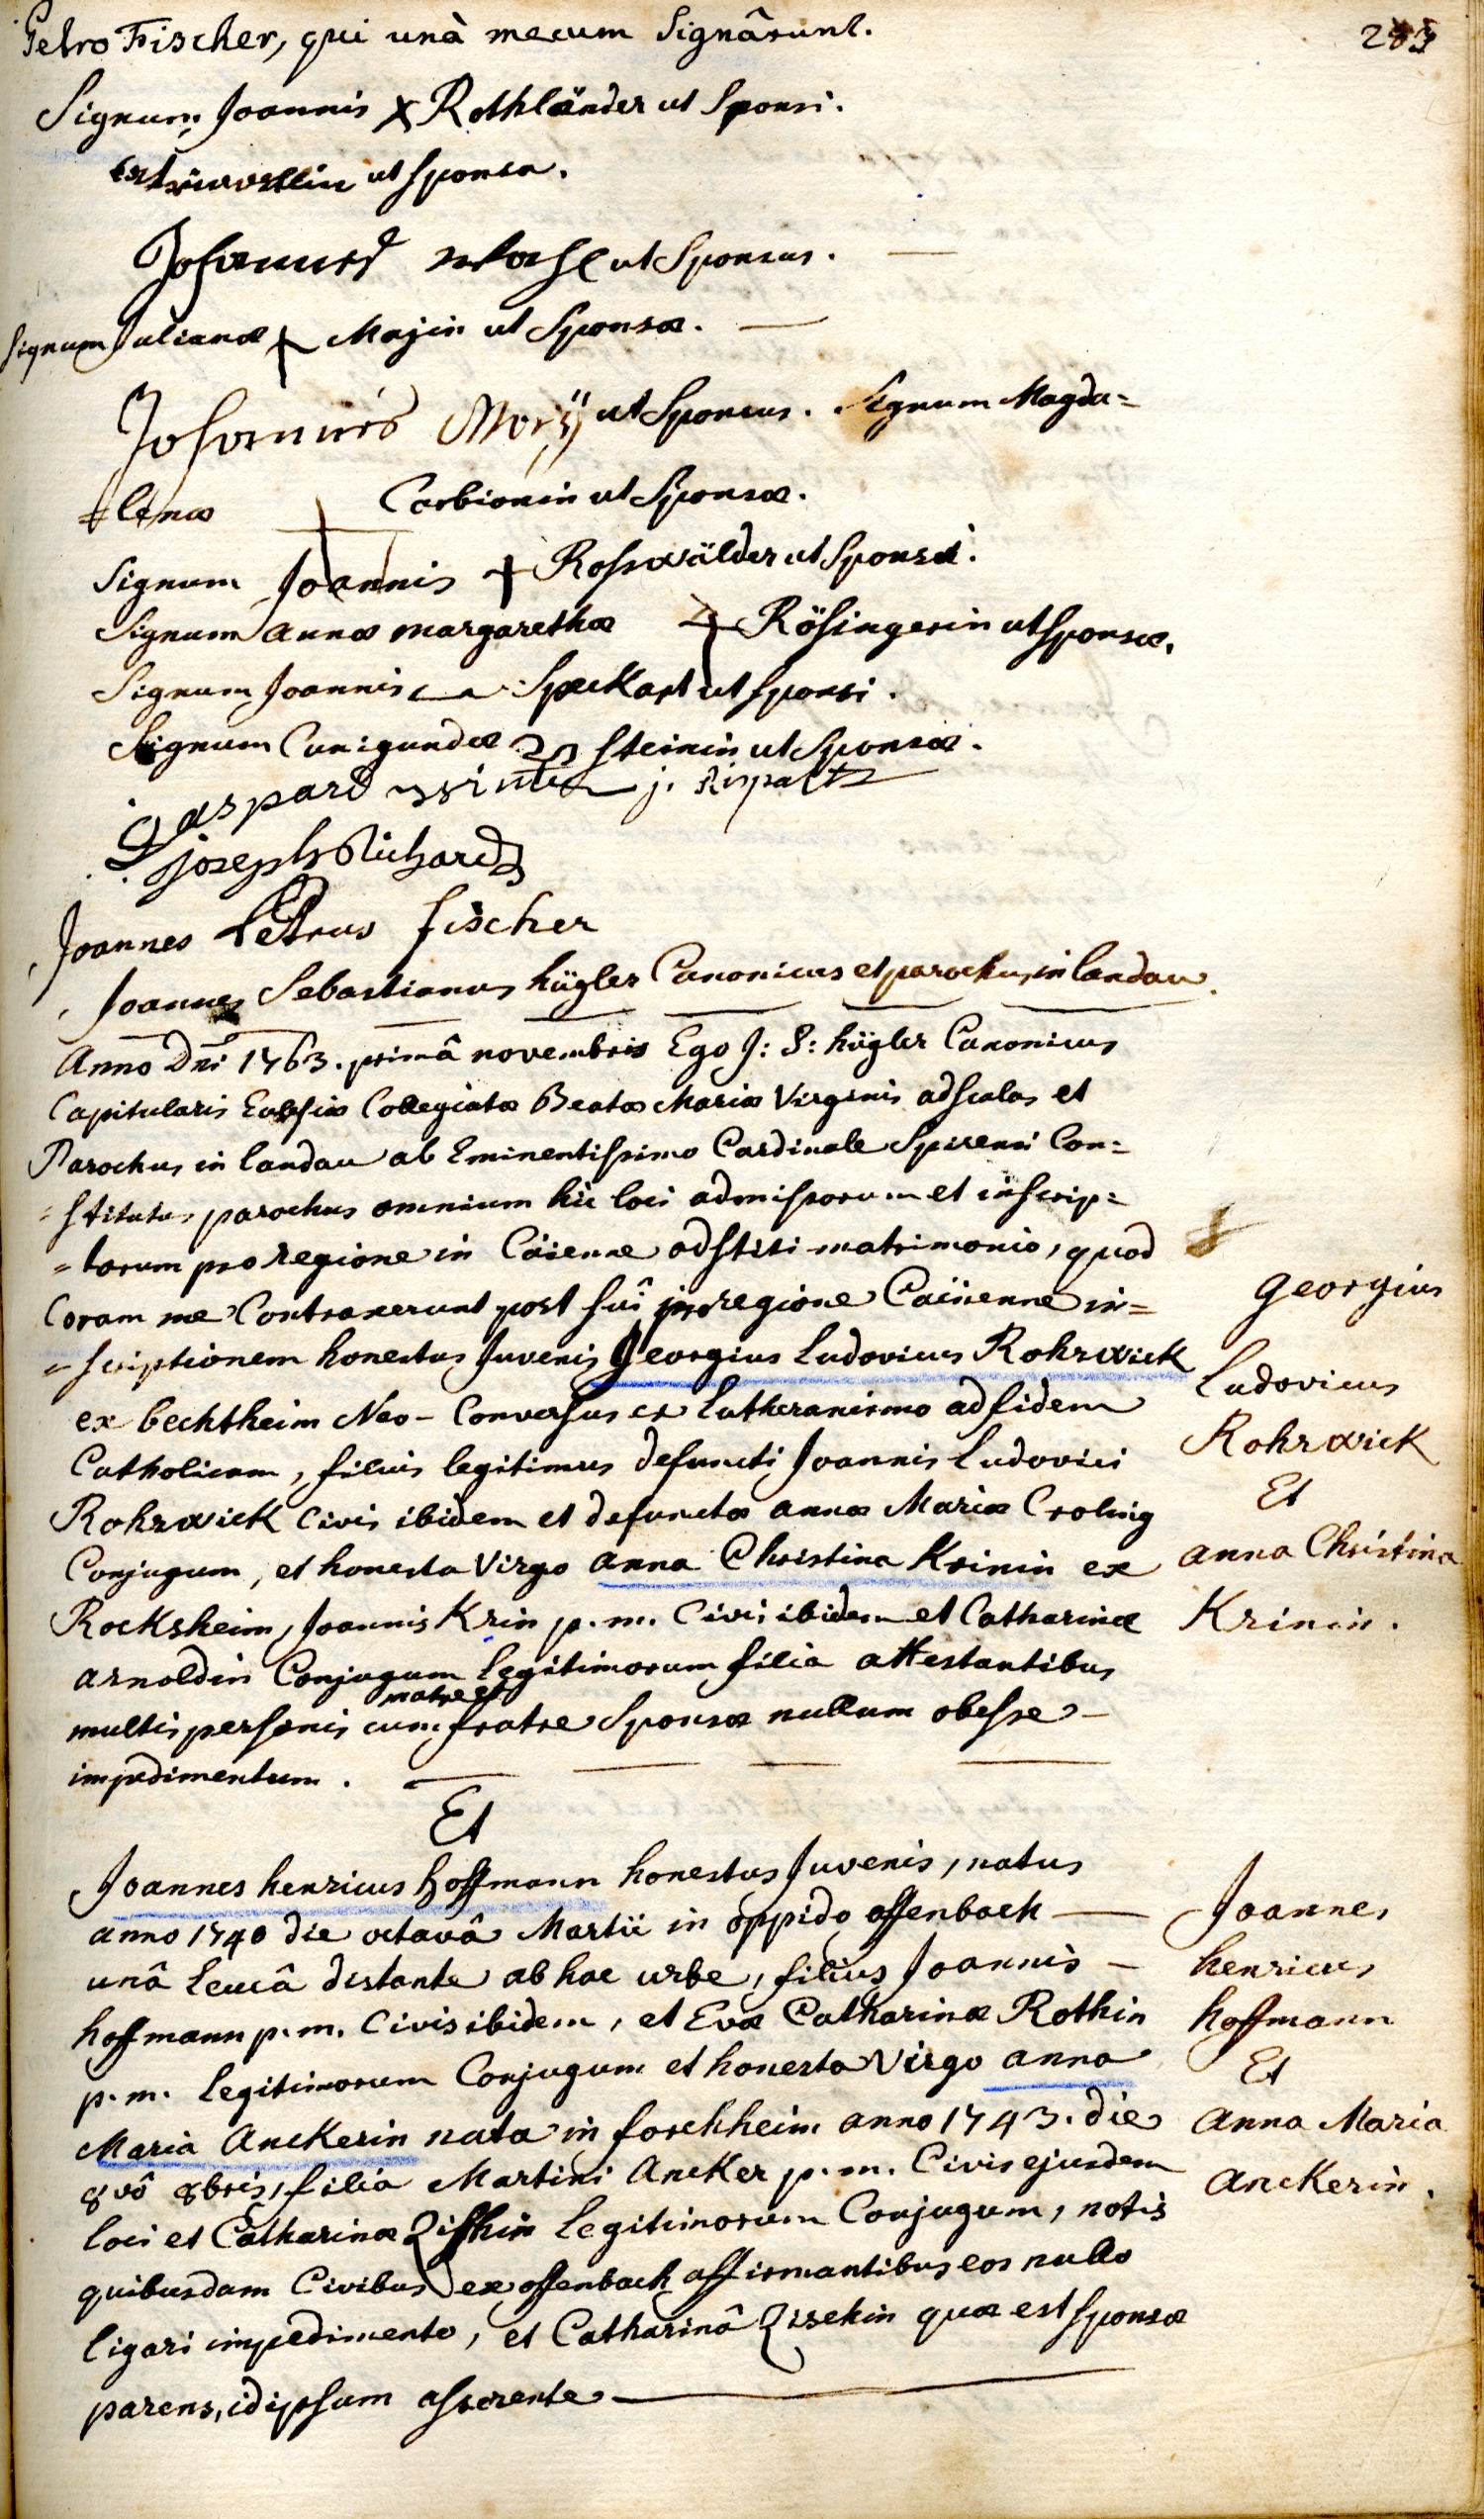 Petro Fischer, qui unà mecum Signârunt.
Signum Joannis X Rothländer ut Sponsi.
ut Sponsa.
Johannes ut Sponsus.
Signum Julianæ + Majin ut Sponsæ.
Johannes Morÿ ut Sponsus. Signum Magda=
=lenæ + Carbionin ut Sponsæ.
Signum Joannis + Rosswälder ut Sponsi.
Signum annæ margarethæ + Rösingerin ut Sponsæ.
Signum Joannis Speckart ut Sponsi.
Signum Cunigundæ Steinin ut Sponsæ.
j. Rispalt
joseph Richard
Joannes Petrus fischer
Joannes Sebastianus hügler Canonicus et parochus in landau.
Anno Dni 1763. primâ novembris Ego J: S: hügler Canonicus
Capitularis Eclesiæ Collegiatæ Beatæ Mariæ Virginis ad Scalas et
Parochus in landau ab Eminentissimo Cardinale Spirensi Con=
=stitutus parochus omnium hic loci admissorum et inscrip=
=torum pro regione in Caienne adstiti matrimonio, quod
Coram me Contraxerunt post sui pro regione Caiienne in=
=scriptionem honestus Juvenis Georgius Ludovicus Rohrwick
ex bechtheim Neo-Conversus ex Lutheranismo ad fidem
Catholicam, filius legitimus defuncti Joannis Ludovici
Rohrwick Civis ibidem et defunctæ annæ Mariæ Crolnig
Conjugum, et honesta Virgo anna Christina Krinin ex
Rocksheim, Joannis Krin p.m. Civis ibidem et Catharinæ
arnoldin Conjugum Legitimorum filia attestantibus
matre et
multis personis cum fratre Sponsæ nullum obesse
impedimentum.
Et
Joannes henricus hoffmann honestus Juvenis, natus
anno 1740 die octavâ Martii in oppido offenbach
unâ leucâ distante ab hac urbe, filius Joannis
hoffmann p.m. Civis ibidem, et Evæ Catharinæ Rothin
p.m. Legitimorum Conjugum et honesta Virgo anna
Maria Anckerin nata in forchheim anno 1743. die
8vô 8bris, filia Martini Ancker p.m. Civis ejusdem
loci et Catharinæ Zischin Legitimorum Conjugum, notis
quibusdam Civibus ex offenbach affirmantibus eos nullo
ligari impedimento, et Catharinâ Zisckin quæ est Sponsæ
parens, id ipsum asserente
georgius
Ludovicus
Rohrwick
Et
anna Christina
Krinin.
Joannes
henricus
hoffmann
Et
Anna Maria
Anckerin.